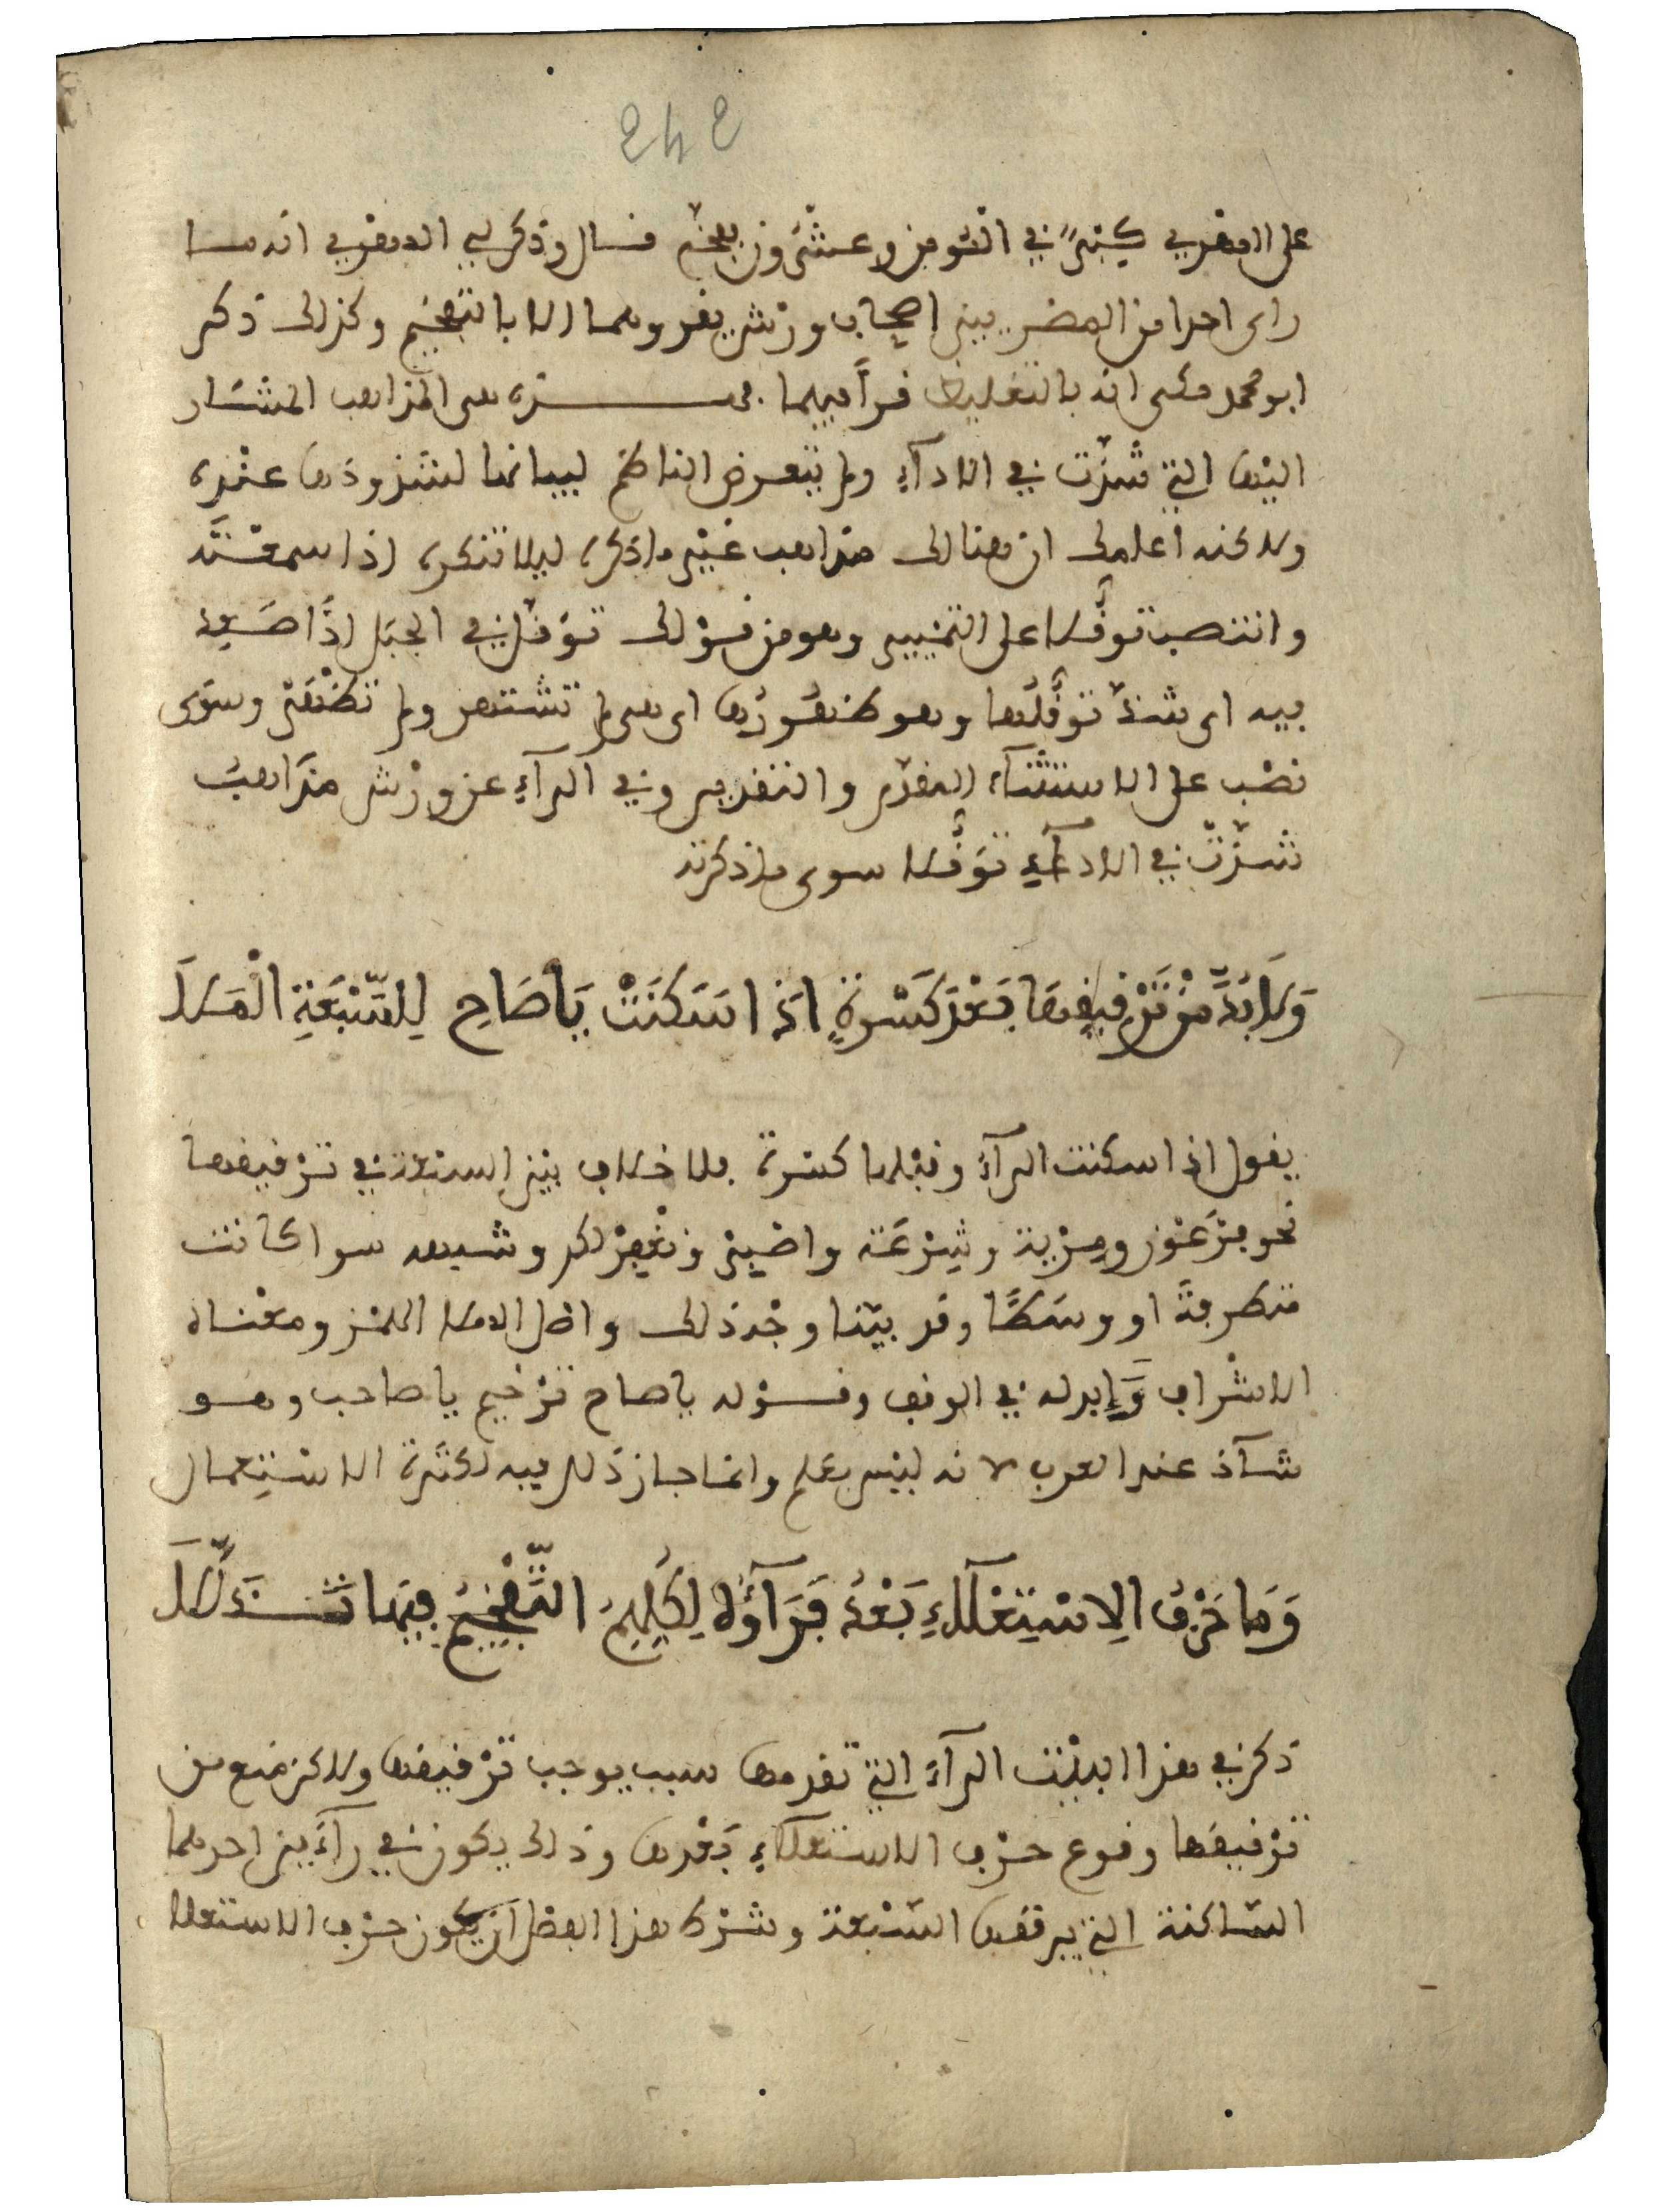 242
على المقرى كبر في النومين وعشرون بفخم قال وذكر لي المقرى انه ما
راى احدا من المصريين اصحاب ورش يقرؤهما الا بالتفخيم وكذلك ذكر
ابو محمد مكى انه بالتغليظ قرأ فيهما فهذه هى المذاهب المشار
اليها التي شذّت في الادآء ولم يتعرض الناظم لبيانها لشذوذها عنده
ولاكنه اعلمك ان هنالك مذاهب غير ماذكره ليلا تنكره اذا سمعته
وانتصب توقّلا على التمييز وهو من قولك توقّل في الجبل اذا صعد
فيه اى شذّ توقّلها وهو ظهورها اى هى لم تشتهر ولم تظهر وسوى
نصب على الاستثناء المقدّم والتقدير وفي الرآء عن ورش مذاهب
شذّت في الادآء توقّلا سوى ماذكرته
وَلَا بُدَّ مِنْ تَرْقِيقِهَا بَعْدَ كَسْرَةٍ اِذَا سَكَنَتْ يَا صَاحِ لِلسَّبْعَةِ الْمَلَا
يقول اذا سكنت الرآء وقبلها كسرة فلا خلاف بين السبعة في ترقيقها
نحو فرعون ومرية وشرعة واصبر ونغفر لكم وشبهه سوا كانت
متطرفة او وسطا وقد بيّنا وجه ذلك واصل الملا الهمز ومعناه
الاشراف وَابدله في الوقف وقوله يا صاح ترخيم يا صاحب وهو
شآذ عند العرب لانه ليس بعلم وانما جاز ذلك فيه لكثرة الاستعمال
وَمَا حَرْفُ الِاسْتِعْلَاءِ بَعْدُ فَرَآؤُهُ لِكُلِّهِمُ التَّفْخِيمُ فِيهَا تَذَلَّلَا
ذكر في هذا البيت الرآء التي تقدمها سبب يوجب ترقيقها ولاكن منع من
ترقيقها وقوع حرف الاستعلآء بعدها وذلك يكون في رآءين احدهما
الساكنة التي يرققها السبعة وشرط هذا الفصل ان يكون حرف الاستعلا